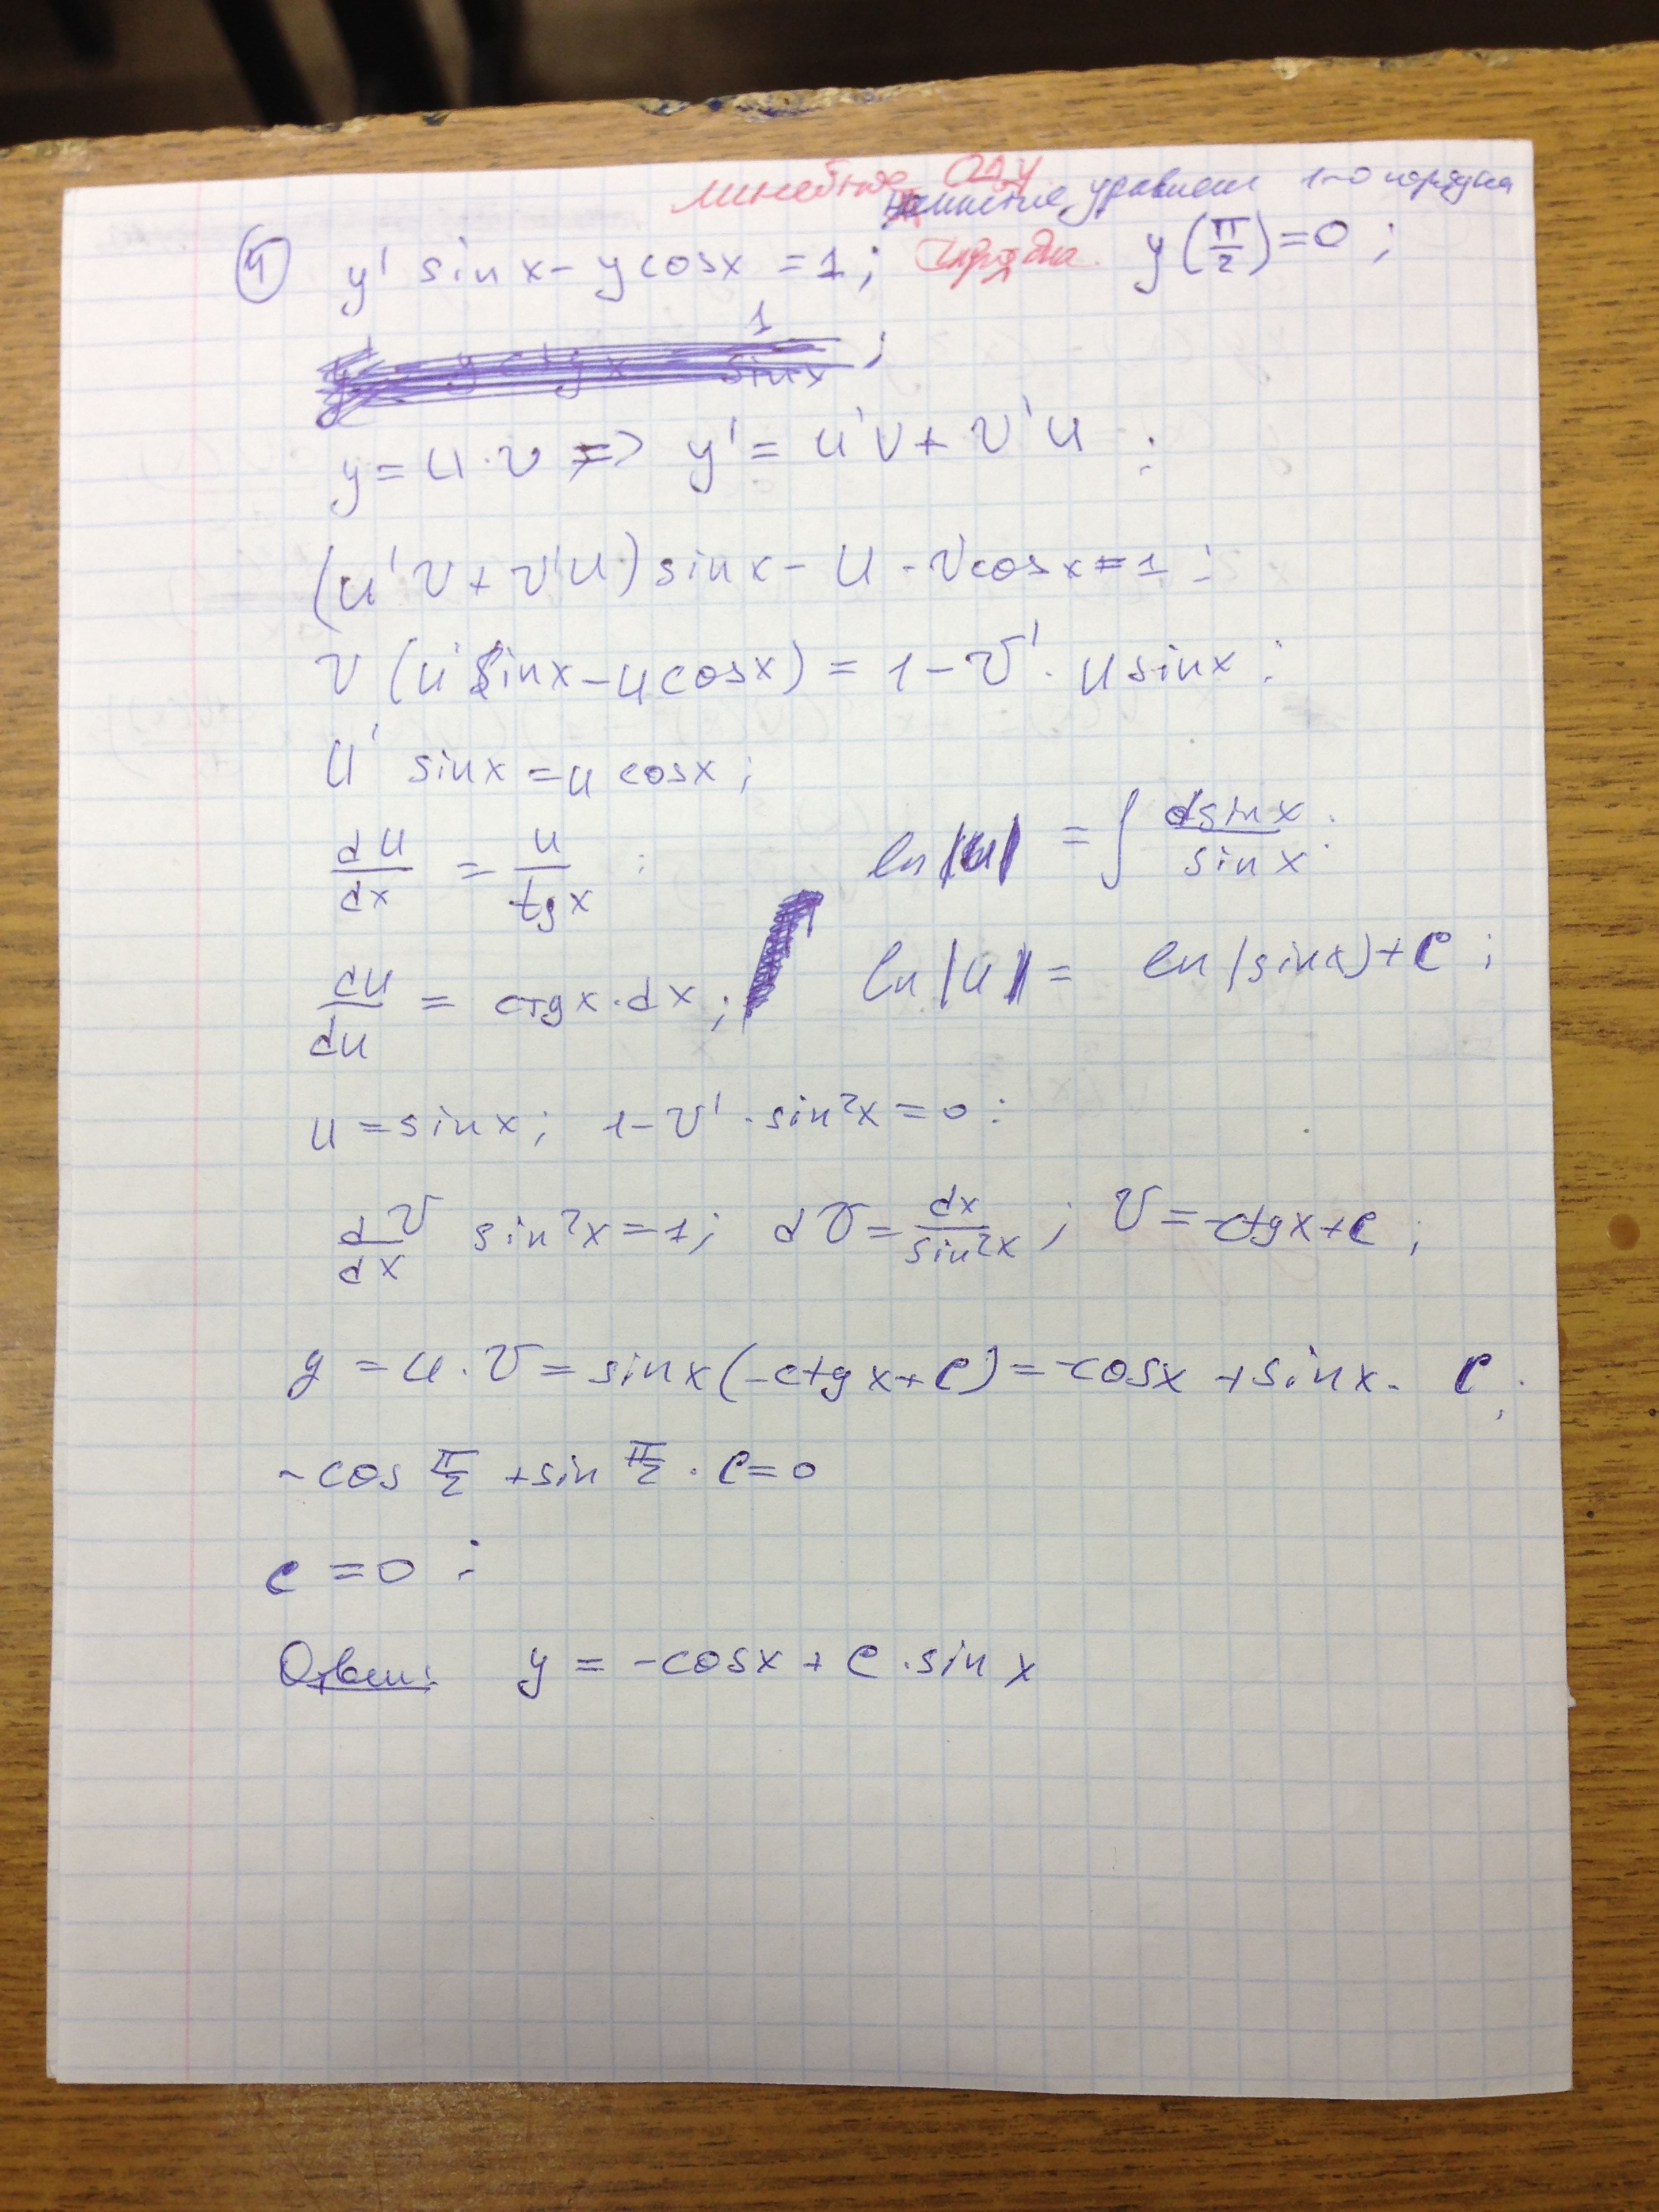 линейное ОДУ
уравнение 1-го порядка
④ y' sin x - y cos x = 1; I порядка. y(π/2) = 0;
y = u · v => y' = u'v + v'u ;
(u'v + v'u) sin x - u · v cos x = 1 ;
v (u' sin x - u cos x) = 1 - v' · u sin x ;
u' sin x = u cos x ;
du/dx = u/tg x ;
du/du = ctg x · dx ;
ln |u| = ∫ dsin x / sin x ;
ln |u| = ln |sin x| + C ;
u = sin x ; 1 - v' · sin²x = 0 ;
dv/dx sin²x = 1 ; dv = dx/sin²x ; v = -ctg x + C ;
y = u · v = sin x (-ctg x + C) = -cos x + sin x · C ;
-cos π/2 + sin π/2 · C = 0
C = 0 ;
Ответ: y = -cos x + C · sin x